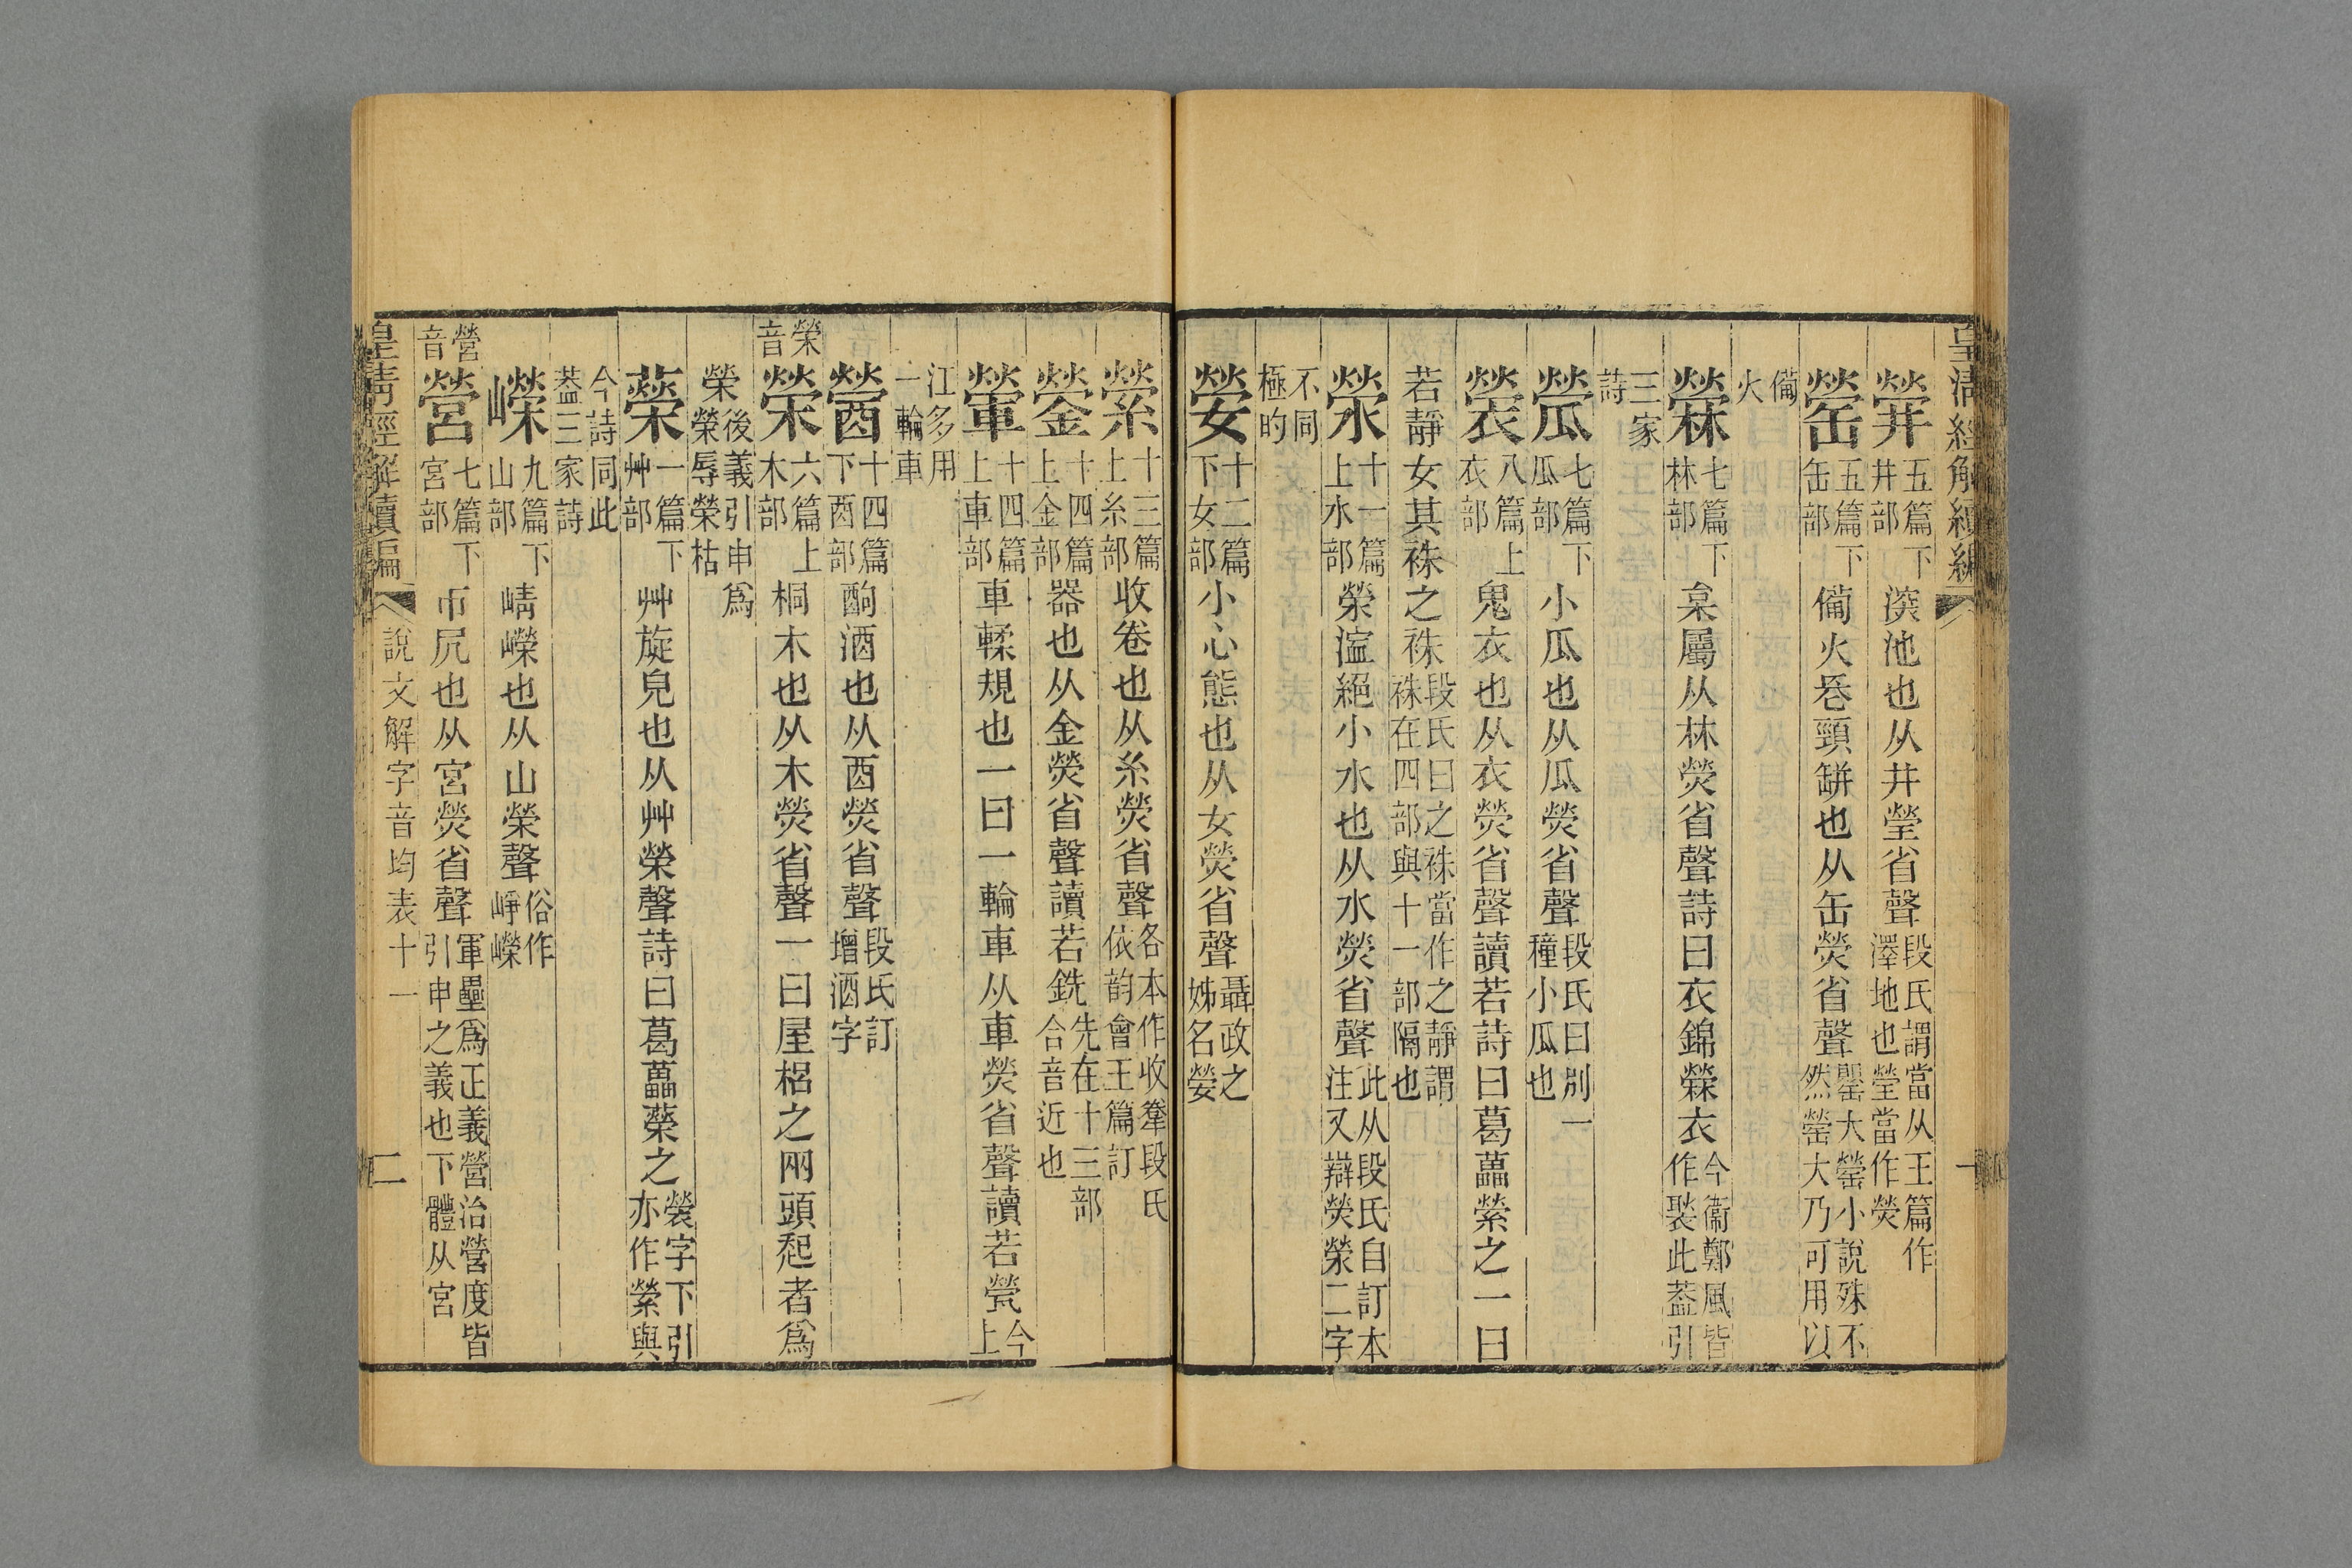 皇清經解續編
𦉥井 五篇下井部 漃池也从井瑩省聲 段氏謂當从玉篇作澤地也瑩當作熒
罃 五篇下缶部 備火巹頸缾也从缶熒省聲 罌大罃小說殊不然罃大乃可用以
備火
檾 七篇下𣏟部 枲屬从𣏟熒省聲詩曰衣錦檾衣 今衞鄭風皆作褧此葢引
三家詩
𤬏 七篇下瓜部 小瓜也从瓜熒省聲 段氏曰別一種小瓜也
褮 八篇上衣部 鬼衣也从衣熒省聲讀若詩曰葛藟縈之一曰
若靜女其袾之袾 段氏曰之袾當作之靜謂袾在四部與十一部隔也
滎 十一篇上水部 滎濙絕小水也从水熒省聲 此从段氏自訂本注又辯熒滎二字
不同極旳
嫈 十二篇下女部 小心態也从女熒省聲 聶政之姊名嫈
縈 十三篇上糸部 收卷也从糸熒省聲 各本作收韏段氏依韵會玉篇訂
鎣 十四篇上金部 器也从金熒省聲讀若銑 先在十三部合音近也
𨍭 十四篇上車部 車輮規也一曰一輪車从車熒省聲讀若煢 今上
江多用一輪車
醟 十四篇下酉部 酌酒也从酉熒省聲 段氏訂增酒字
榮音 榮 六篇上木部 桐木也从木熒省聲一曰屋梠之兩頭起者爲
榮 後義引申爲榮辱榮枯
藑 一篇下艸部 艸旋皃也从艸榮聲詩曰葛藟蘃之 褮字下引亦作縈與
今詩同此葢三家詩
嶸 九篇下山部 崝嶸也从山榮聲 俗作崢嶸
營音 營 七篇下宮部 帀凥也从宮熒省聲 軍壘爲正義營治營度皆引申之義也下體从宮
皇清經解續編 說文解字音均表十一 二